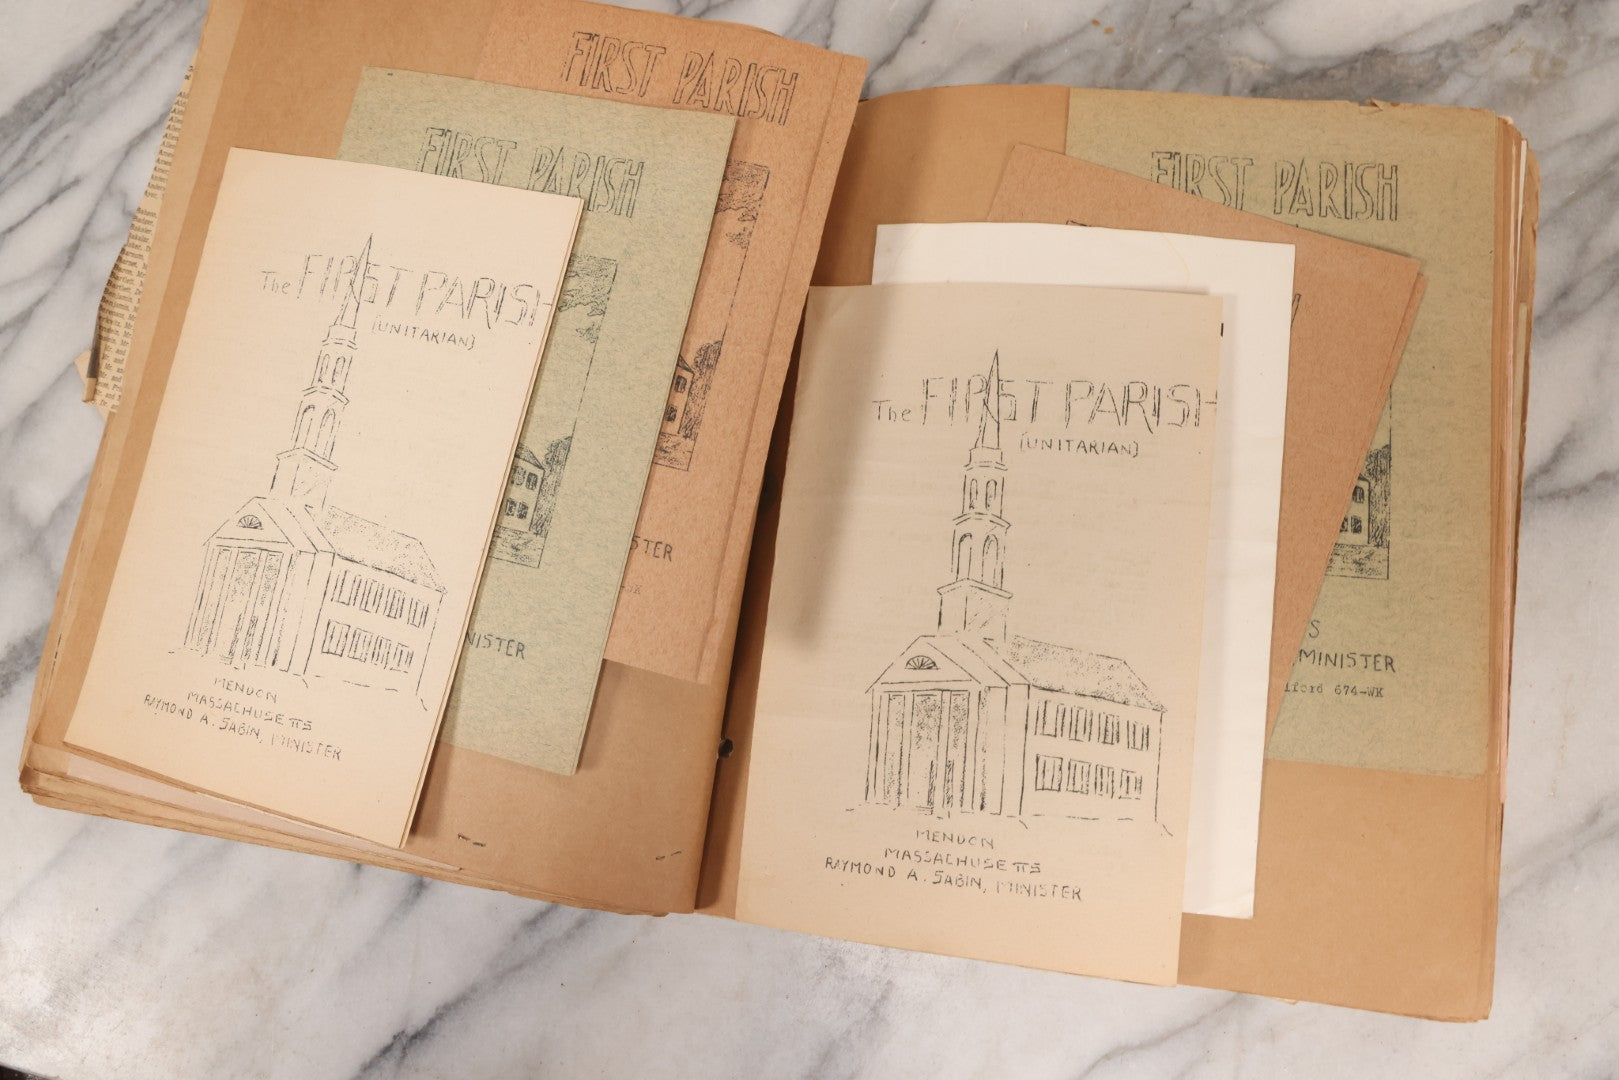 FIRST PARISH
STER
FIRST PARISH
NISTER
The FIRST PARISH
(UNITARIAN)
MENDON
MASSACHUSETTS
RAYMOND A. SABIN, MINISTER
FIRST PARISH
S
MINISTER
lford 674-WK
The FIRST PARISH
(UNITARIAN)
MENDON
MASSACHUSETTS
RAYMOND A. SABIN, MINISTER